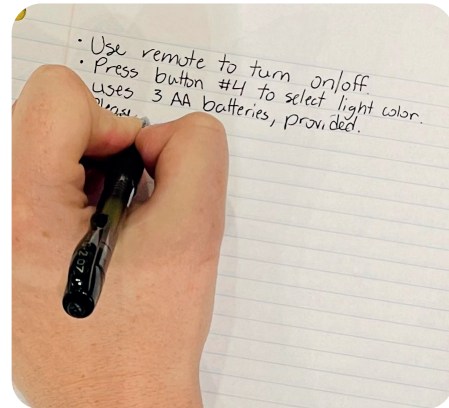 · Use remote to turn on/off.
· Press button #4 to select light color.
uses 3 AA batteries, provided.